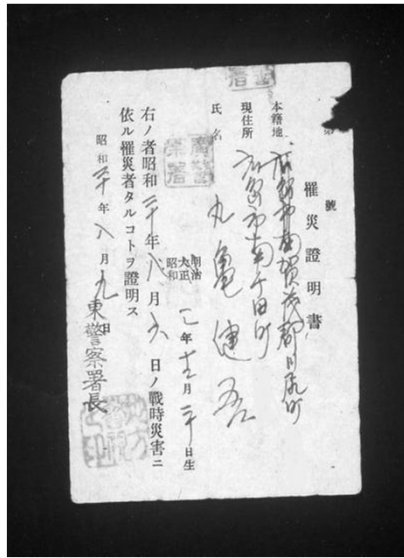 號
罹災證明書
本籍地 賀茂郡川尻町
現住所 広島市南千田町
氏名 丸亀健吾
明治
大正
昭和
年 月 日生
右ノ者昭和二十年八月六日ノ戰時災害ニ
依ル罹災者タルコトヲ證明ス
昭和二十年八月九日
東警察署長